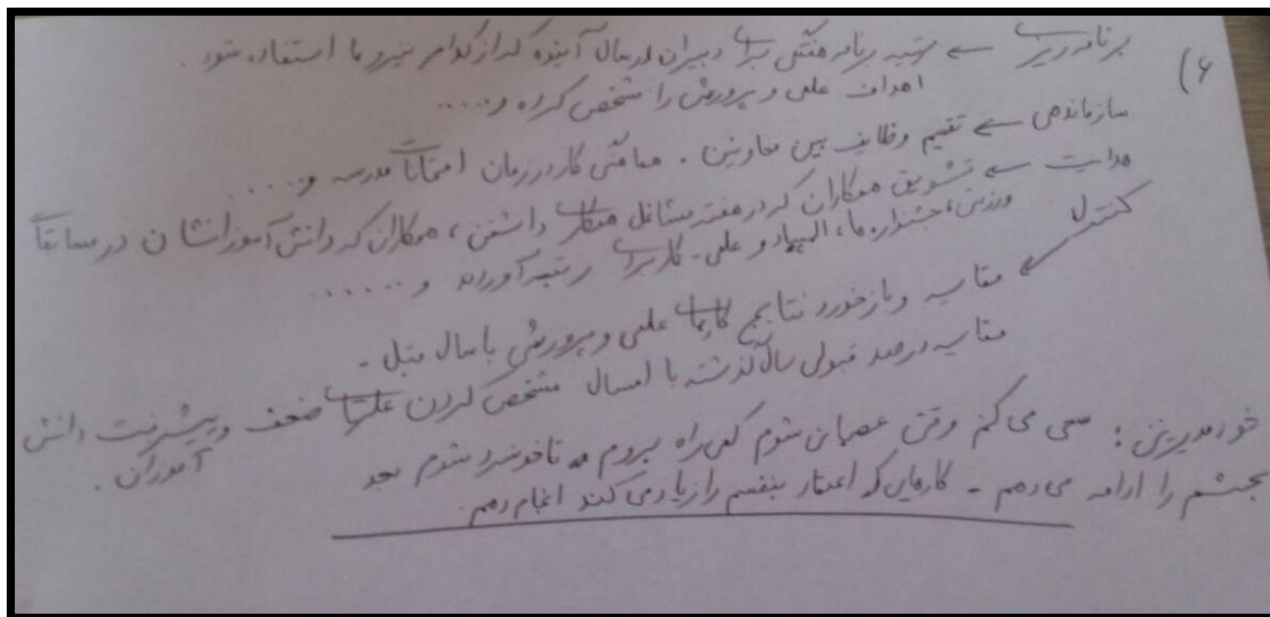 ۶) برنامه ریزی ← تهیه برنامه هفتگی برای دبیران در سال آینده که از کدام نیروها استفاده شود.
اهداف علمی و پرورشی را مشخص کرده و.....
سازماندهی ← تقسیم وظایف بین معاونین. هماهنگی کار در زمان امتحانات مدرسه و.....
هدایت ← تشویق همکاران که در هفته مشاغل همکاری داشتن، همکاران که دانش آموزانشان در مسابقات
ورزشی، جشنواره ها، المپیاد و علمی - کاربرای رتبه آورند و ......
کنترل ← مقایسه و بازخورد نتایج کارهای علمی و پرورشی با سال قبل -
مقایسه درصد قبولی سال گذشته با امسال مشخص کردن علتهای ضعف و پیشرفت دانش
آموزان.
خود مدیریتی: سعی می کنم وقتی عصبانی شوم کمی راه بروم تا خونسرد شوم بعد
بحثم را ادامه می دهم - کارهایی که اعتماد بنفسم را زیاد می کند انجام دهم.